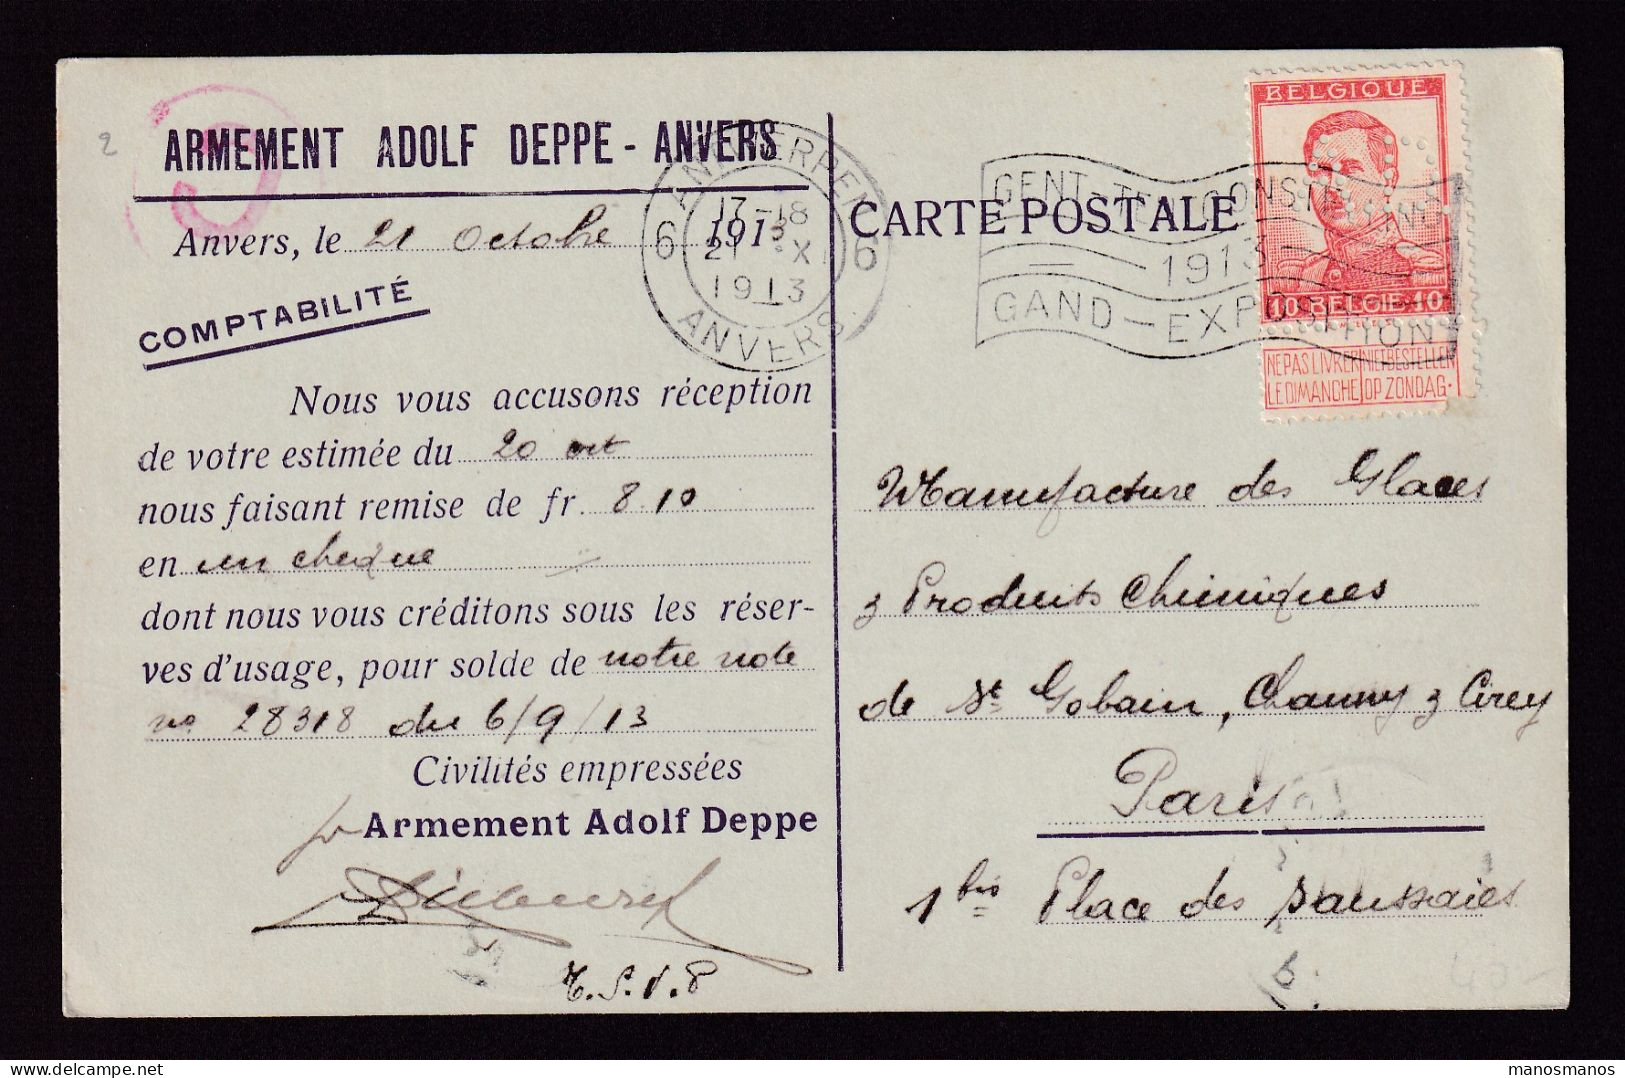 ARMEMENT ADOLF DEPPE - ANVERS
Anvers, le 21 Octobre 1913
COMPTABILITÉ
Nous vous accusons réception
de votre estimée du 20 crt
nous faisant remise de fr. 8.10
en un chèque
dont nous vous créditons sous les réser-
ves d'usage, pour solde de notre note
no 28318 du 6/9/13
Civilités empressées
Armement Adolf Deppe
T.S.V.P
ANTWERPEN
6 17-18 6
21 X
1913
ANVERS
CARTE POSTALE
GENT-TENTOONSTELLING
1913
GAND-EXPOSITION
BELGIQUE
10 BELGIE 10
NE PAS LIVRER NIET BESTELLEN
LE DIMANCHE OP ZONDAG.
Manufacture des Glaces
& Produits Chimiques
de St Gobain, Chauny & Cirey
Paris
1 bis Place des Saussaies
2
manosmanos